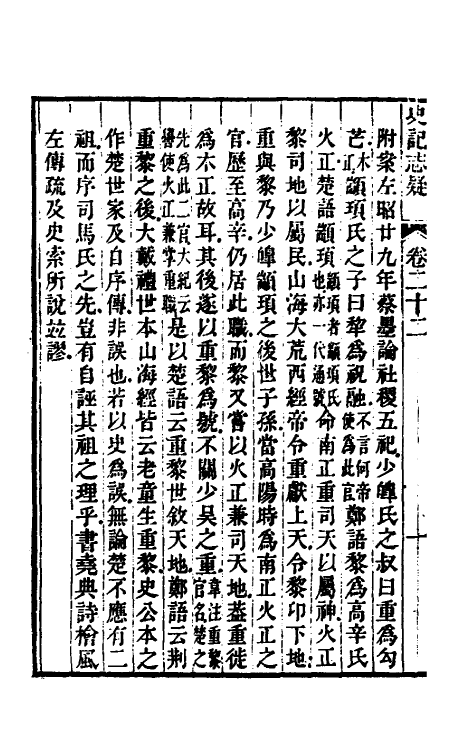 史記志疑 卷二十二 十
附案左昭廿九年蔡墨論社稷五祀少皥氏之叔曰重爲勾
芒木正顓頊氏之子曰犂爲祝融不言何帝使爲此官鄭語黎爲高辛氏
火正楚語顓頊顓頊者顓頊氏也亦一代通號命南正重司天以屬神火正
黎司地以屬民山海大荒西經帝令重獻上天令黎卬下地
重與黎乃少皥顓頊之後世子孫當高陽時爲南正火正之
官歷至高辛仍居此職而黎又嘗以火正兼司天地蓋重徙
爲木正故耳其後遂以重黎爲號不關少吴之重韋注重黎官名楚之
先爲此二官大紀云嚳使火正兼掌重職是以楚語云重黎世敘天地鄭語云荆
重黎之後大戴禮世本山海經皆云老童生重黎史公本之
作楚世家及自序傳非誤也若以史爲誤無論楚不應有二
祖而序司馬氏之先豈有自誣其祖之理乎書堯典詩檜風
左傳疏及史索所說竝謬